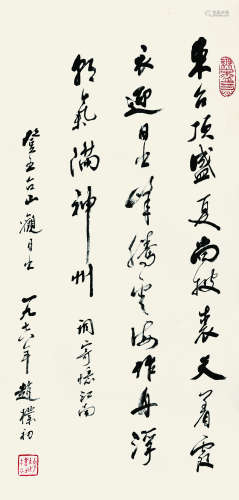 東台頂盛夏尚披裘天着霞
衣迎日出峰騰雲海作舟浮
朝氣滿神州 調寄憶江南
登五台山觀日出 一九七年 趙樸初